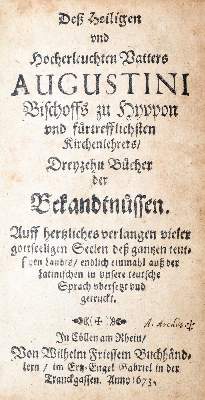 Deß Heiligen
vnd
Hocherleuchten Vatters
AUGUSTINI
Bischoffs zu Hyppon
vnd fürtrefflichsten
Kirchenlehrers/
Dreyzehn Bücher
der
Bekandtnüssen.
Auff hertzliches verlangen vieler
gottseeligen Seelen deß gantzen teut-
schen Landts/ endlich einmahl auß der
Latinischen in vnsere teutsche
Sprach vbersetzt vnd
getruckt.
In Cöllen am Rhein/
Von Wilhelm Friessem Buchhänd-
lern/ im Ertz-Engel Gabriel in der
Tranckgassen. Anno 1673.